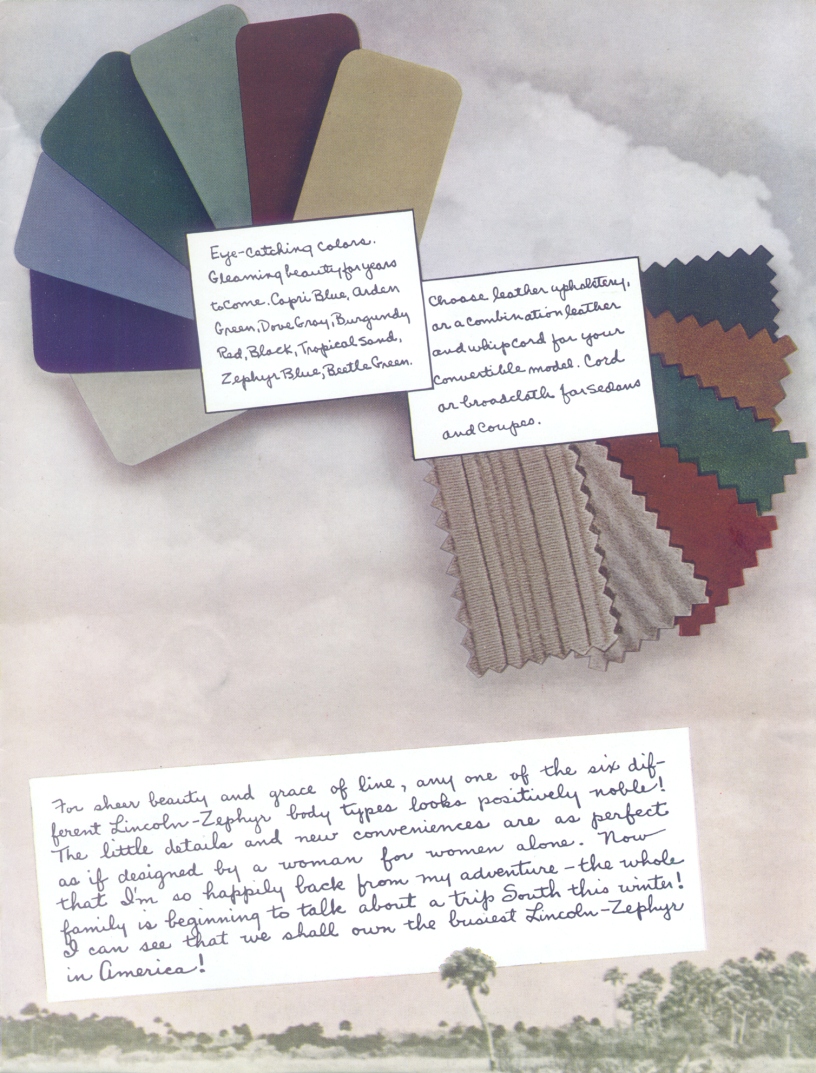 Eye-catching colors.
Gleaming beauty for years
to come. Capri Blue, Arden
Green, Dove Gray, Burgundy
Red, Black, Tropical Sand,
Zephyr Blue, Beetle Green.
Choose leather upholstery,
or a combination leather
and whipcord for your
convertible model. Cord
or broadcloth for Sedans
and Coupes.
For sheer beauty and grace of line, any one of the six dif-
ferent Lincoln-Zephyr body types looks positively noble!
The little details and new conveniences are as perfect
as if designed by a woman for women alone. Now
that I'm so happily back from my adventure - the whole
family is beginning to talk about a trip South this winter!
I can see that we shall own the busiest Lincoln-Zephyr
in America!